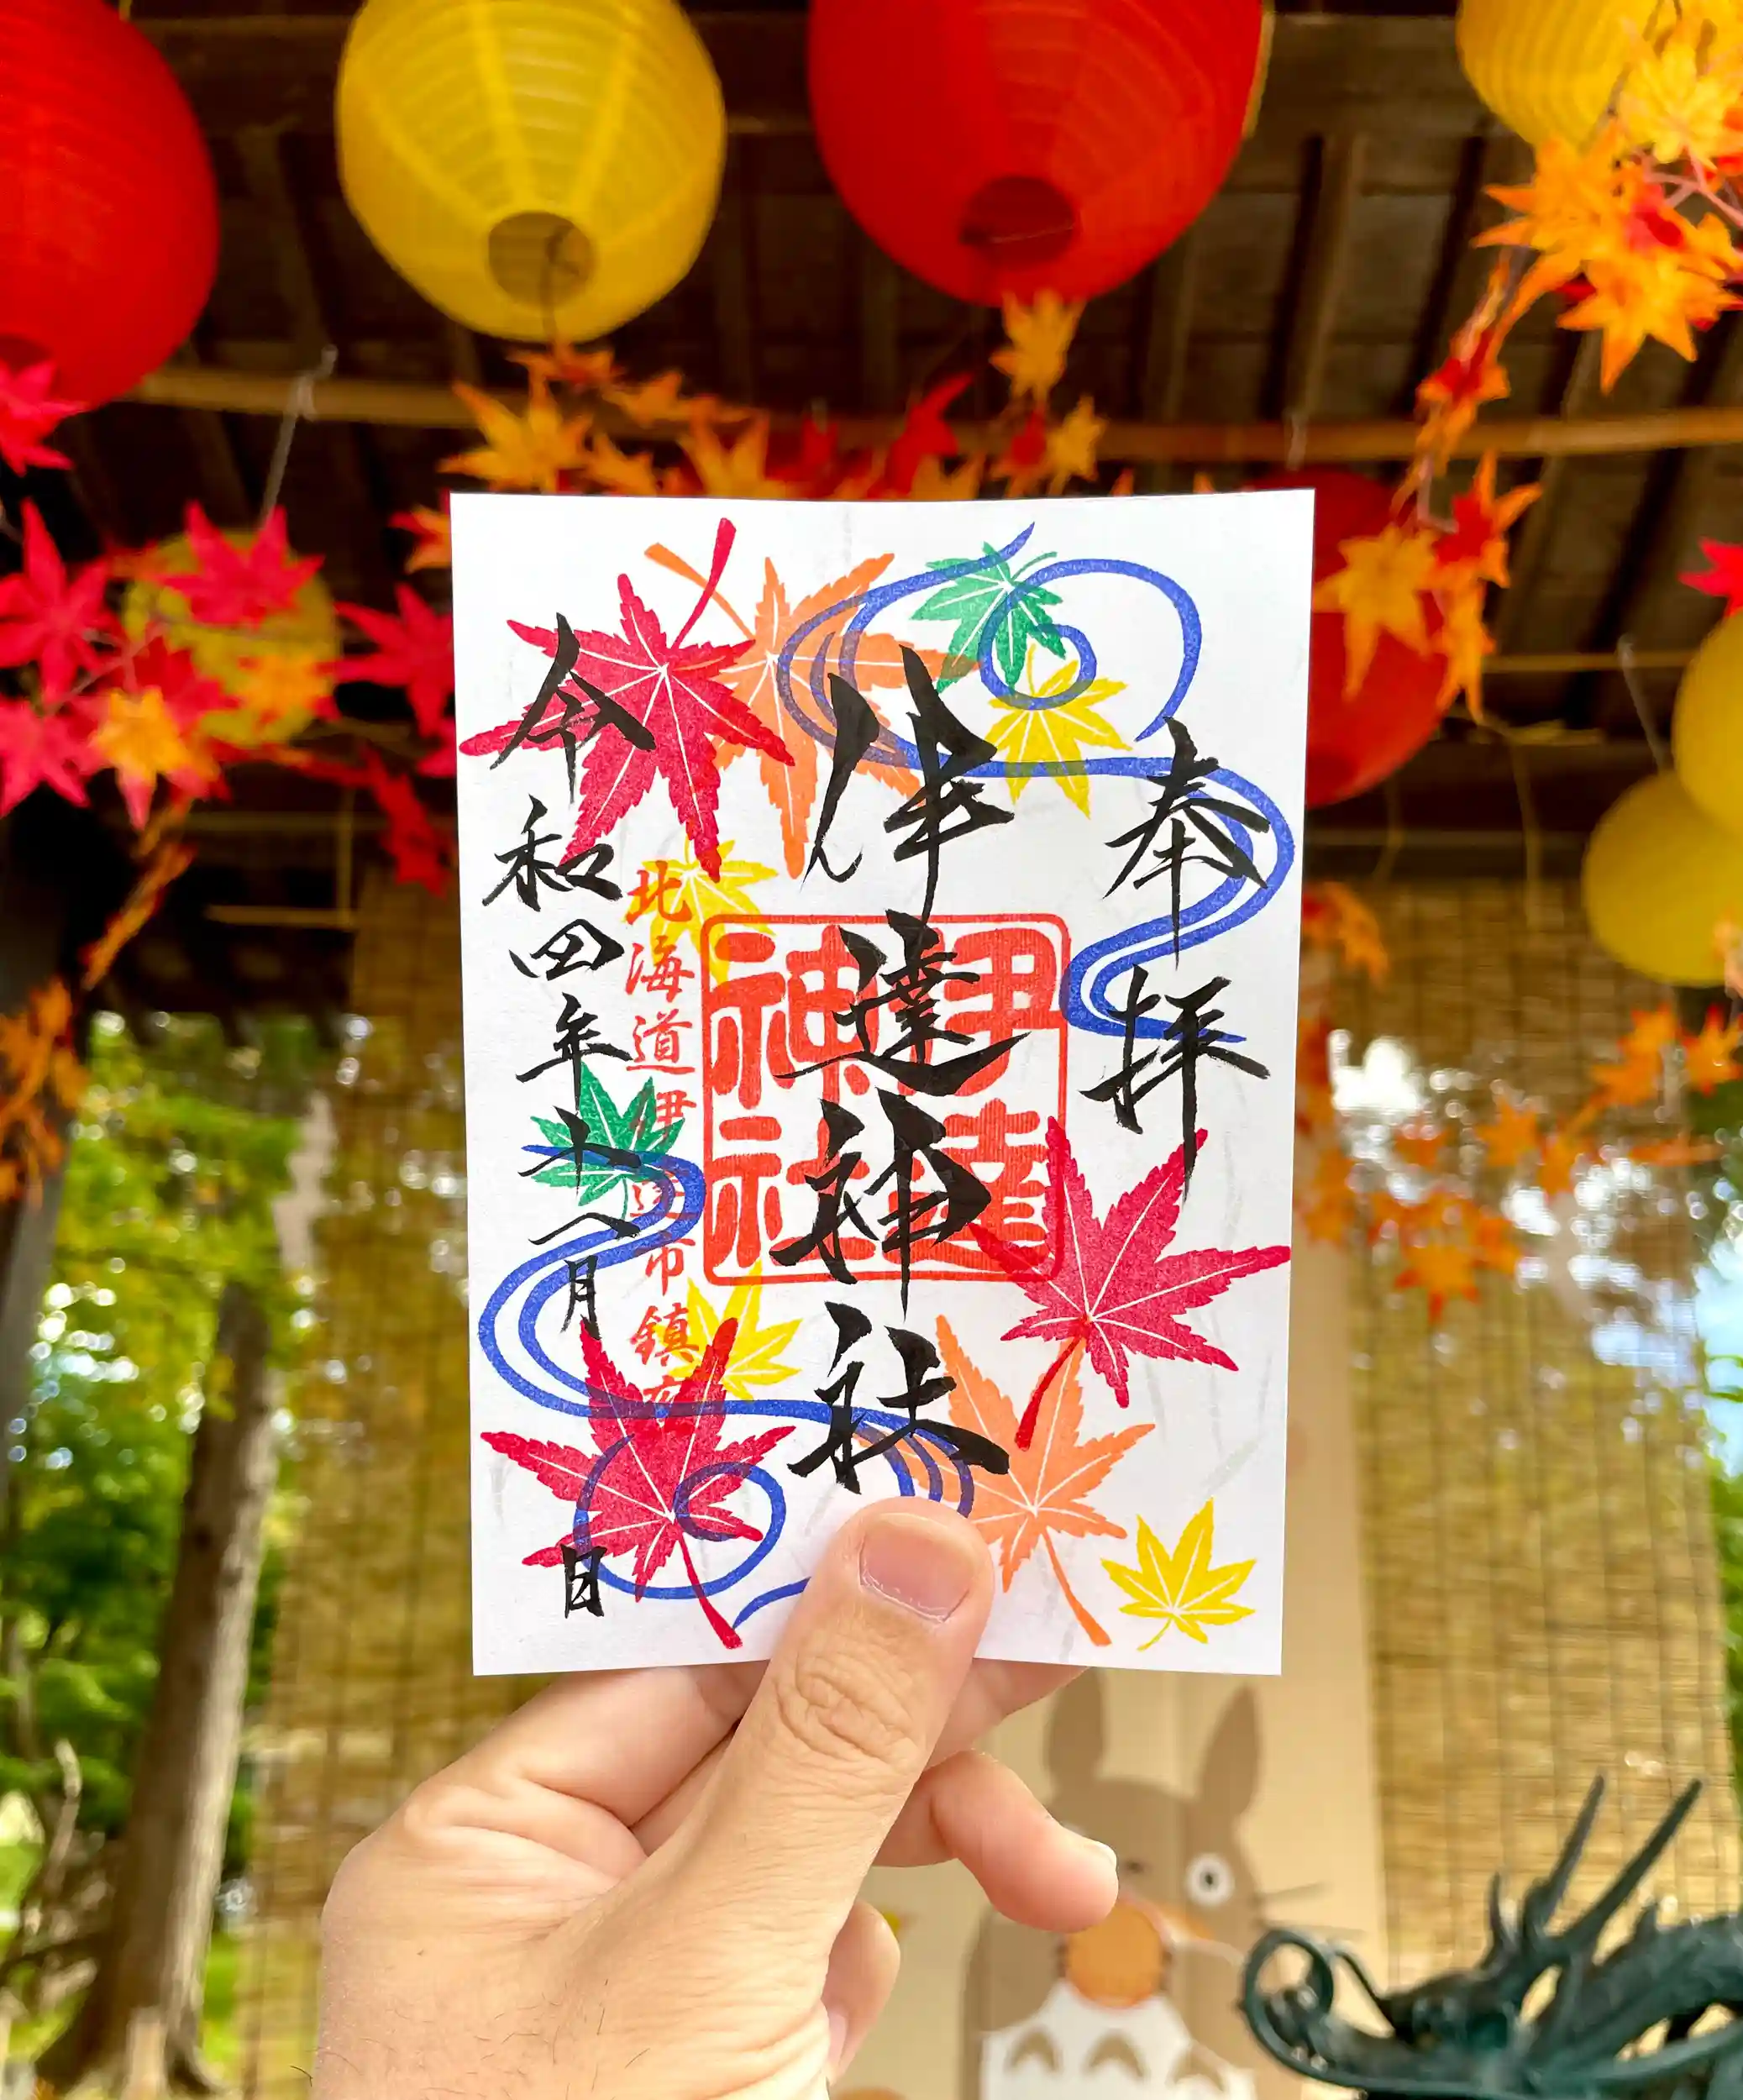 奉拝
伊達神社
伊達
神社
北海道伊達市鎮座
令和四年十一月 日